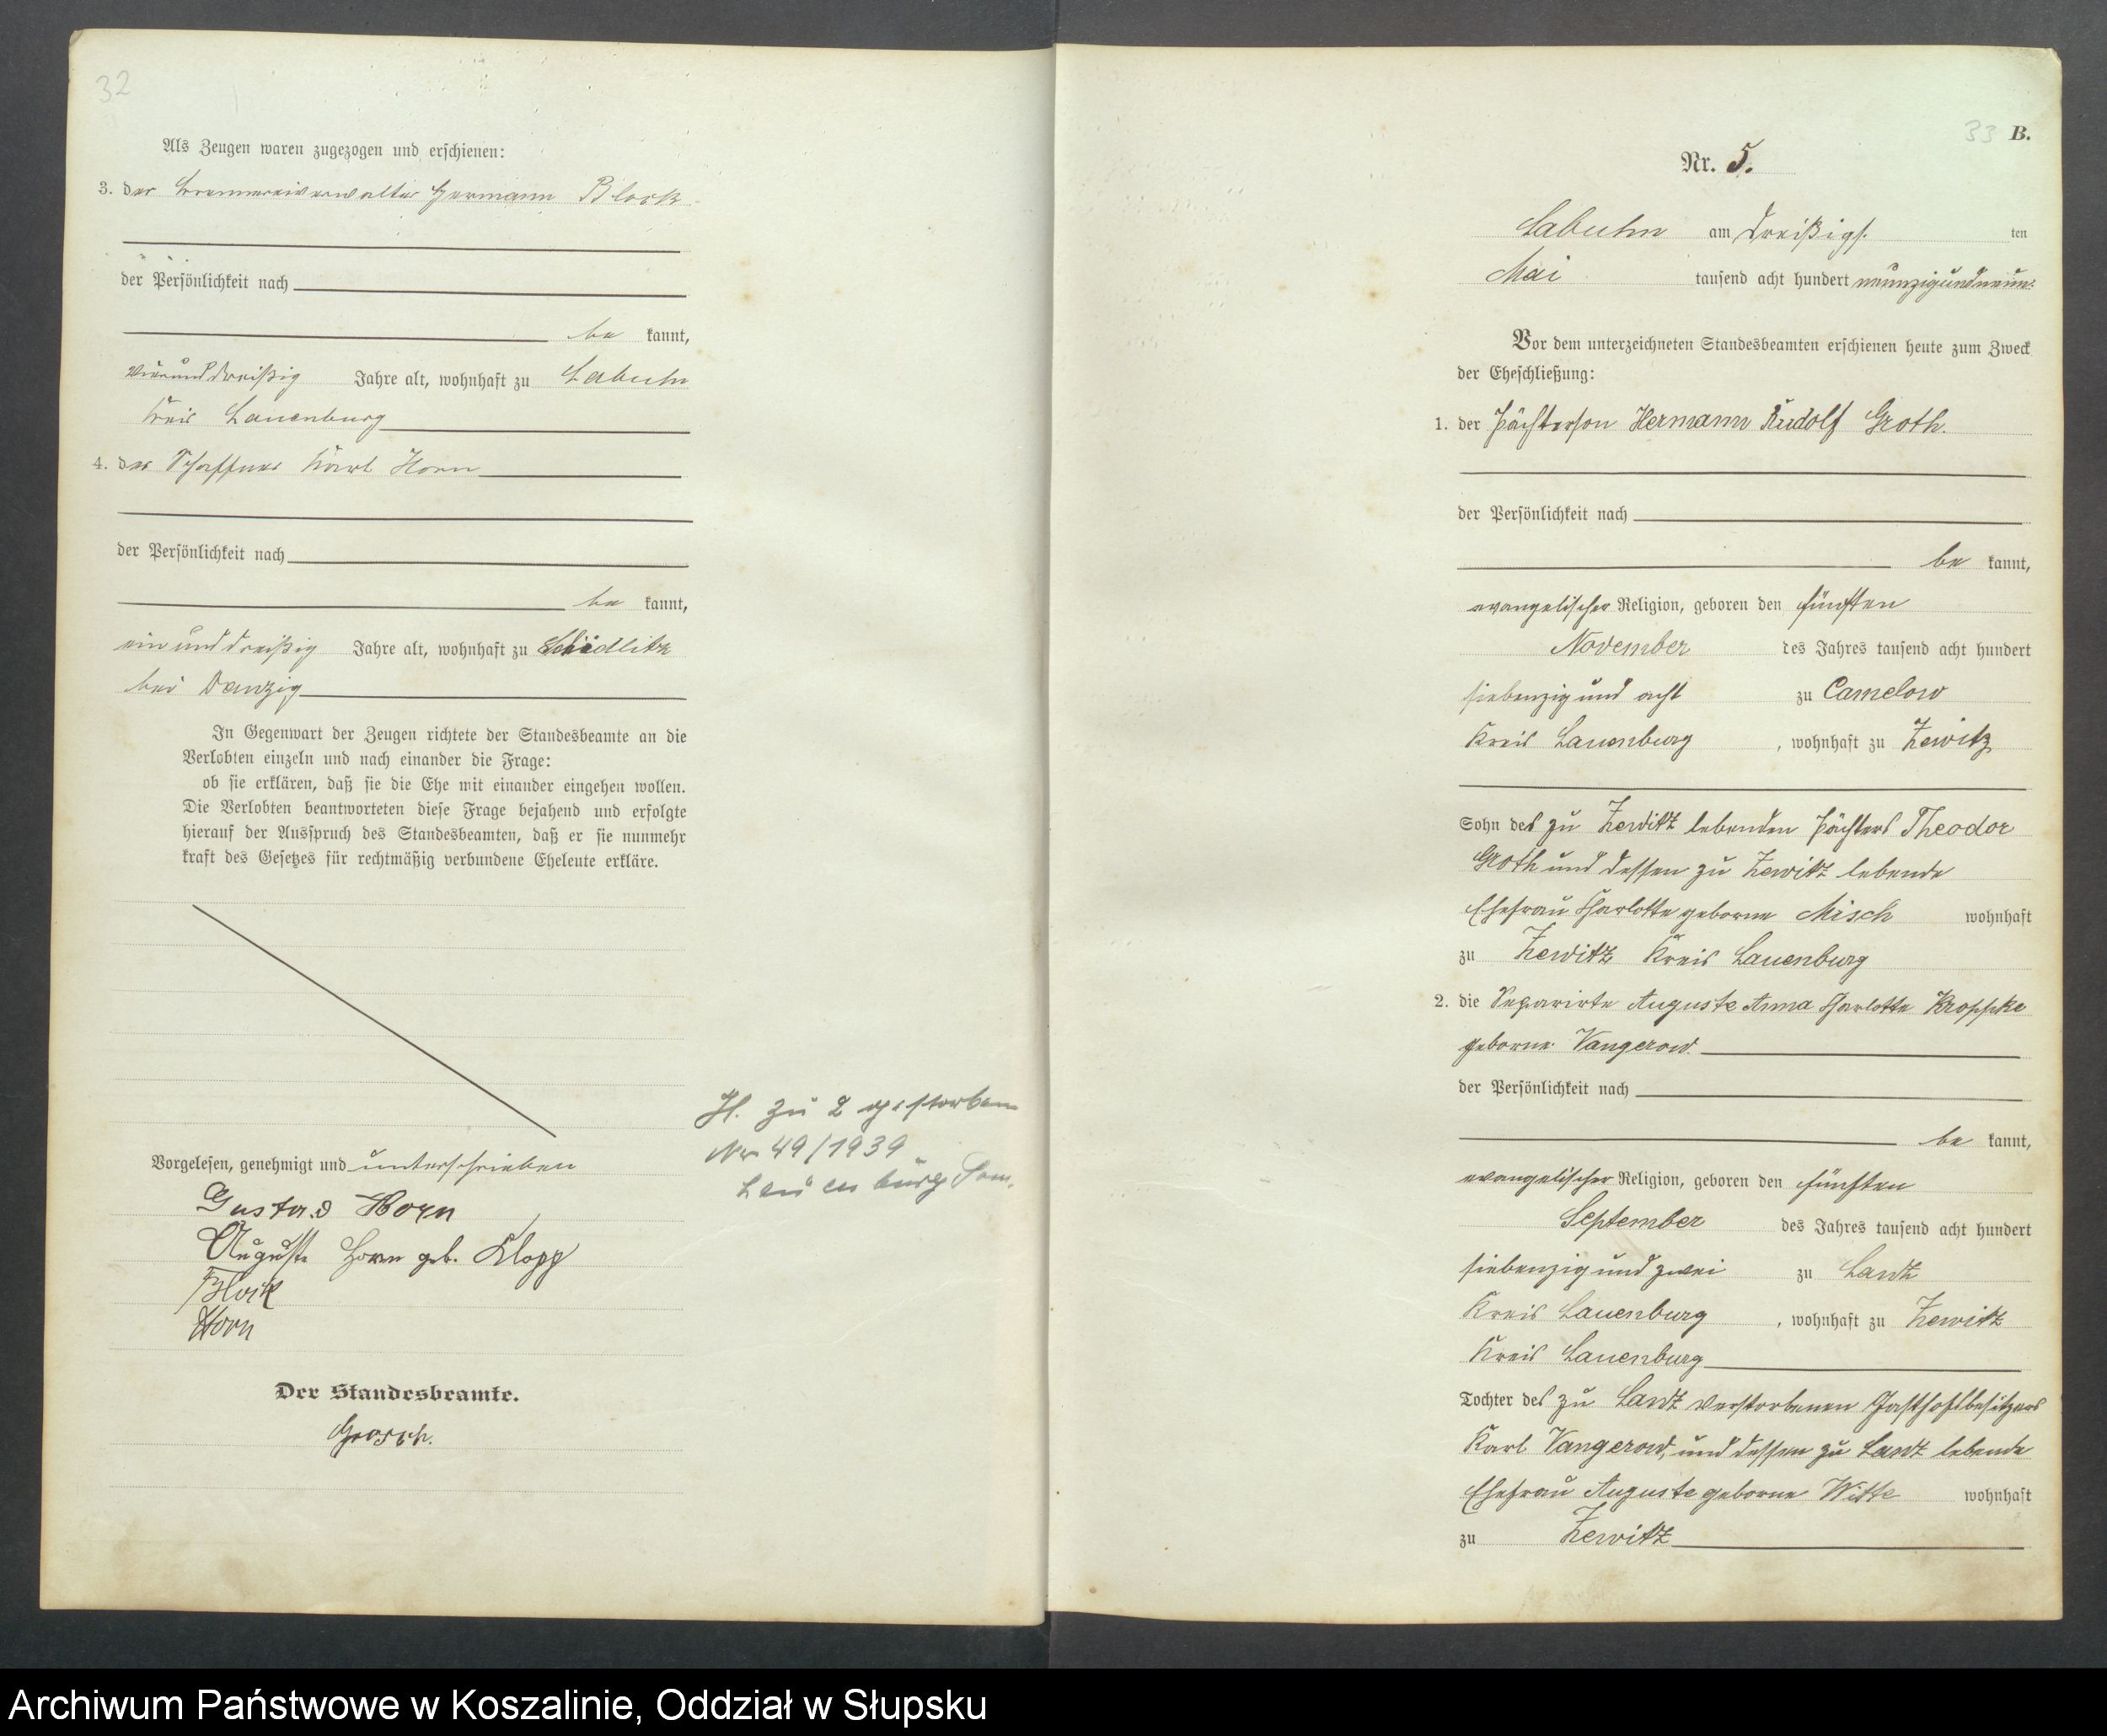 32
Als Zeugen waren zugezogen und erschienen:
3. der Brennereiverwalter Hermann Block
der Persönlichkeit nach
be kannt,
vierunddreißig Jahre alt, wohnhaft zu Labuhn
Kreis Lauenburg
4. der Schaffner Karl Horn
der Persönlichkeit nach
be kannt,
einunddreißig Jahre alt, wohnhaft zu Schidlitz
bei Danzig
In Gegenwart der Zeugen richtete der Standesbeamte an die
Verlobten einzeln und nach einander die Frage:
ob sie erklären, daß sie die Ehe mit einander eingehen wollen.
Die Verlobten beantworteten diese Frage bejahend und erfolgte
hierauf der Ausspruch des Standesbeamten, daß er sie nunmehr
kraft des Gesetzes für rechtmäßig verbundene Eheleute erkläre.
H. zu 2 gestorben
Nr 49/1939
Lauenburg Pom.
Vorgelesen, genehmigt und unterschrieben
Gustav Horn
Auguste Horn geb. Klopp
Block
Horn
Der Standesbeamte.
Grosch.
33 B.
Nr. 5.
Labuhn am dreißigs. ten
Mai tausend acht hundert neunzigundneun.
Vor dem unterzeichneten Standesbeamten erschienen heute zum Zweck
der Eheschließung:
1. der Pächtersohn Hermann Rudolf Groth.
der Persönlichkeit nach
be kannt,
evangelischer Religion, geboren den fünften
November des Jahres tausend acht hundert
siebenzig und acht zu Camelow
Kreis Lauenburg, wohnhaft zu Zewitz
Sohn des zu Zewitz lebenden Pächters Theodor
Groth und dessen zu Zewitz lebende
Ehefrau Charlotte geborne Misch wohnhaft
zu Zewitz Kreis Lauenburg
2. die Separirte Auguste Anna Charlotte Kroppke
geborne Vangerow
der Persönlichkeit nach
be kannt,
evangelischer Religion, geboren den fünften
September des Jahres tausend acht hundert
siebenzig und zwei zu Lantz
Kreis Lauenburg, wohnhaft zu Zewitz
Kreis Lauenburg
Tochter des zu Lantz verstorbenen Gasthofbesitzers
Karl Vangerow, und dessen zu Lantz lebende
Ehefrau Auguste geborne Witte wohnhaft
zu Zewitz
Archiwum Państwowe w Koszalinie, Oddział w Słupsku